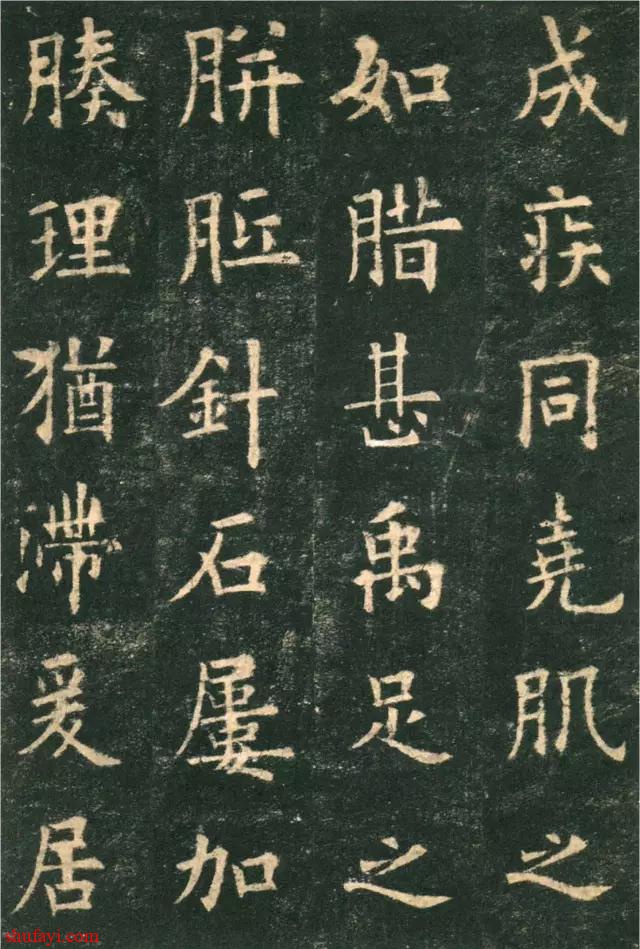 成疾同堯肌之
如腊甚禹足之
胼胝針石屢加
腠理猶滯爰居
shufayi.com